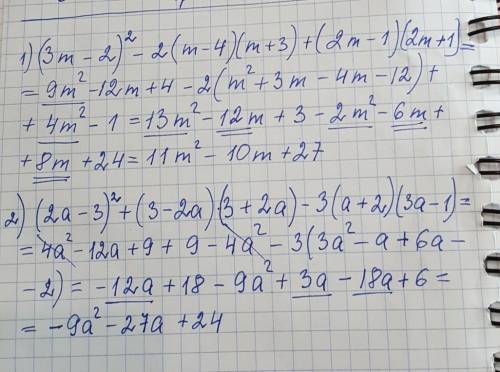 1) (3m - 2)² - 2(m-4)(m+3) + (2m-1)(2m+1) =
= 9m² - 12m + 4 - 2(m² + 3m - 4m - 12) +
+ 4m² - 1 = 13m² - 12m + 3 - 2m² - 6m +
+ 8m + 24 = 11m² - 10m + 27
2) (2a - 3)² + (3 - 2a)·(3 + 2a) - 3(a+2)(3a-1) =
= 4a² - 12a + 9 + 9 - 4a² - 3(3a² - a + 6a -
- 2) = -12a + 18 - 9a² + 3a - 18a + 6 =
= -9a² - 27a + 24